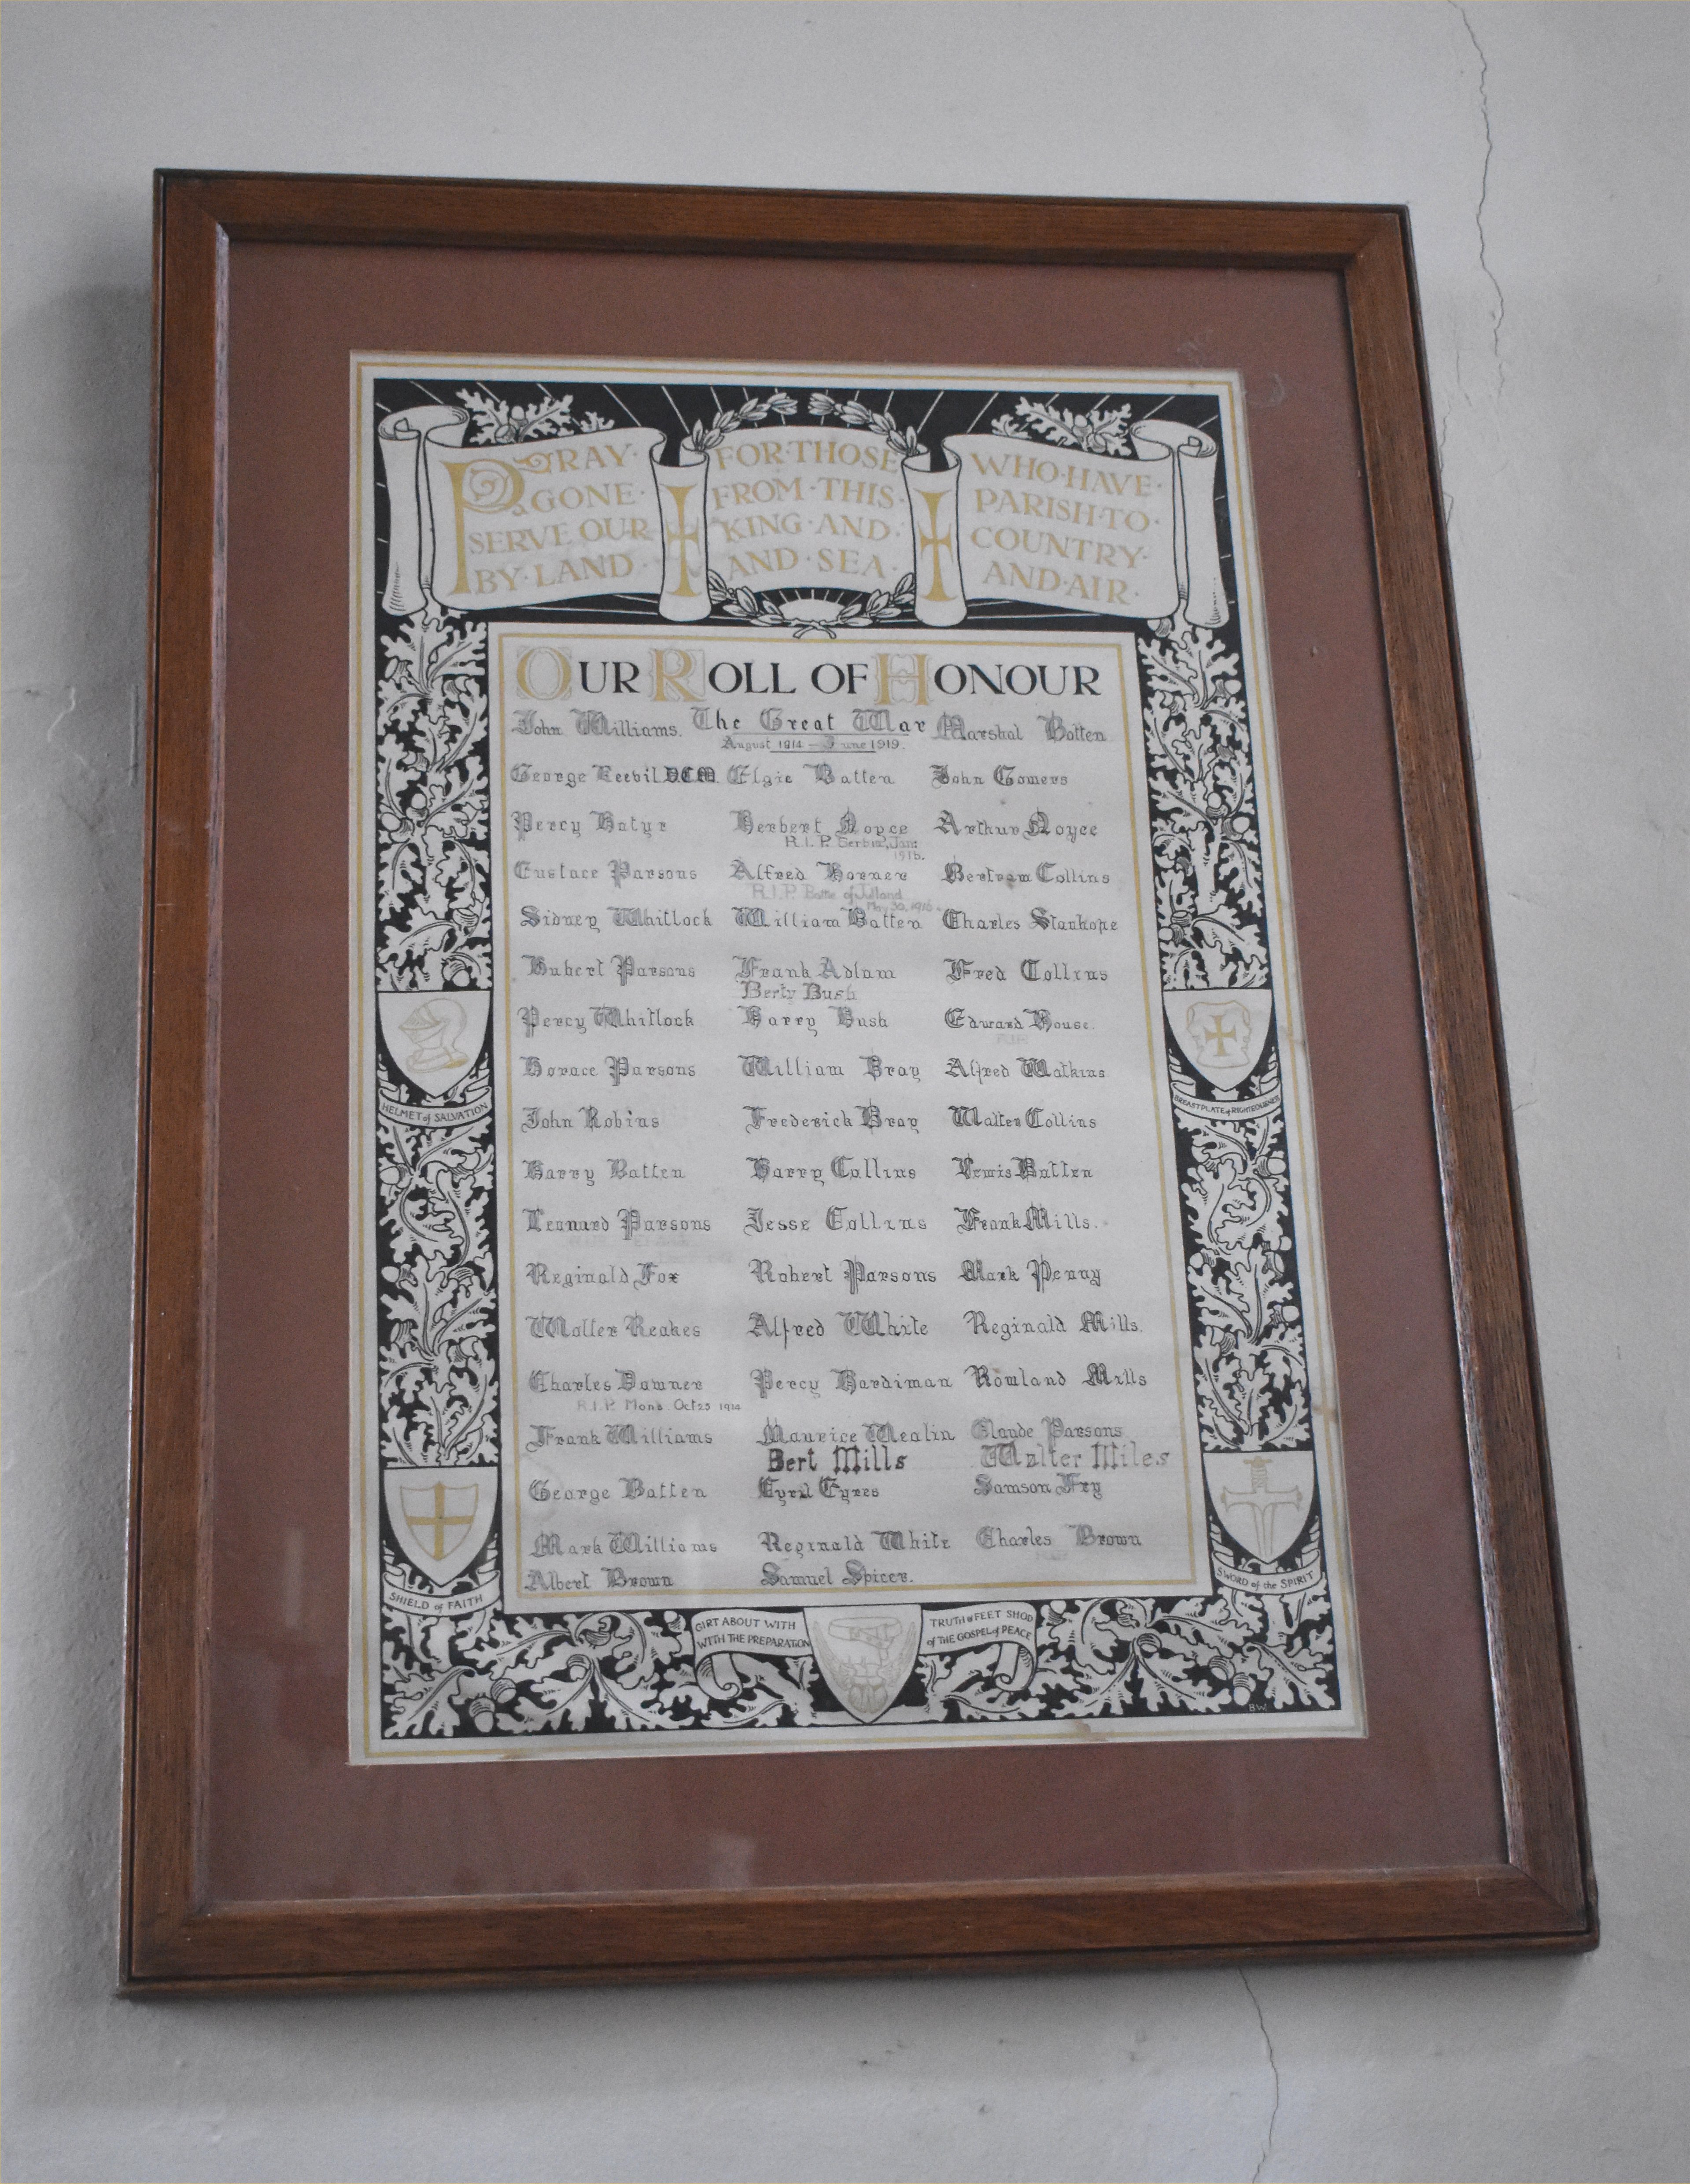 PRAY · FOR · THOSE WHO · HAVE ·
GONE · FROM · THIS · PARISH · TO ·
SERVE OUR KING · AND · COUNTRY ·
BY · LAND · AND · SEA · AND · AIR ·
OUR ROLL OF HONOUR
John Williams. The Great War Marshal Batten
August 1914 — June 1919.
George D.C.M. Elgie Batten John Gomers
Percy Herbert Noyce Arthur Noyce
R.I.P. Serbia, Jan: 1916.
Eustace Parsons Alfred Horner Bertram Collins
R.I.P. Battle of Jutland May 30, 1916.
Sidney Whitlock William Batten Charles Stanhope
Hubert Parsons Frank Adlam Fred Collins
Berty Bush
Percy Whitlock Harry Bush Edward House.
Horace Parsons William Bray Alfred Watkins
John Robins Frederick Bray Walter Collins
Harry Batten Harry Collins Lewis Batten
Leonard Parsons Jesse Collins Frank Mills.
Reginald Fox Robert Parsons Mark Penny
Walter Reakes Alfred White Reginald Mills.
Charles Downer Percy Hardiman Rowland Mills
R.I.P. Mons. Oct 25 1914
Frank Williams Maurice Wealin Claude Parsons
Bert Mills Walter Miles
George Batten Cyril Eyres Samson Fry
Mark Williams Reginald White Charles Brown
Albert Brown Samuel Spicer.
HELMET of SALVATION
BREASTPLATE of RIGHTEOUSNESS
SHIELD of FAITH
SWORD of the SPIRIT
GIRT ABOUT WITH TRUTH & FEET SHOD
WITH THE PREPARATION of THE GOSPEL of PEACE
B.W.